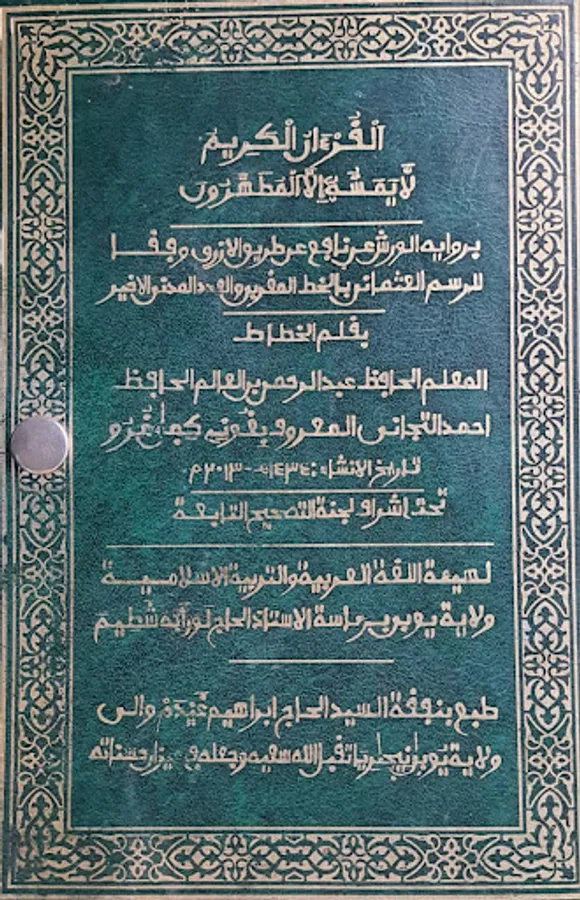 الْقُرْءَانُ الْكَرِيمُ
لَّا يَمَسُّهُ إِلَّا الْمُطَهَّرُونَ
برواية الورش عن نافع عن طريق الازرق وفقا
للرسم العثماني بالخط المغربي والعدد المدني الاخير
بقلم الخطاط
المعلم الحافظ عبد الرحمن بن العالم الحافظ
احمد التجاني المعروف بغوني
تاريخ الانشاء: ١٤٣٤ه-٢٠١٣م
تحت اشراف لجنة التصحيح التابعة
لهيئة اللغة العربية والتربية الاسلامية
ولاية يوبي برءاسة الاستاذ الحاج
طبع بنفقة السيد الحاج ابراهيم غَيْدَمْ والى
ولاية يوبي نيجيريا تقبل الله سعيه وجعله في ميزان حسناته